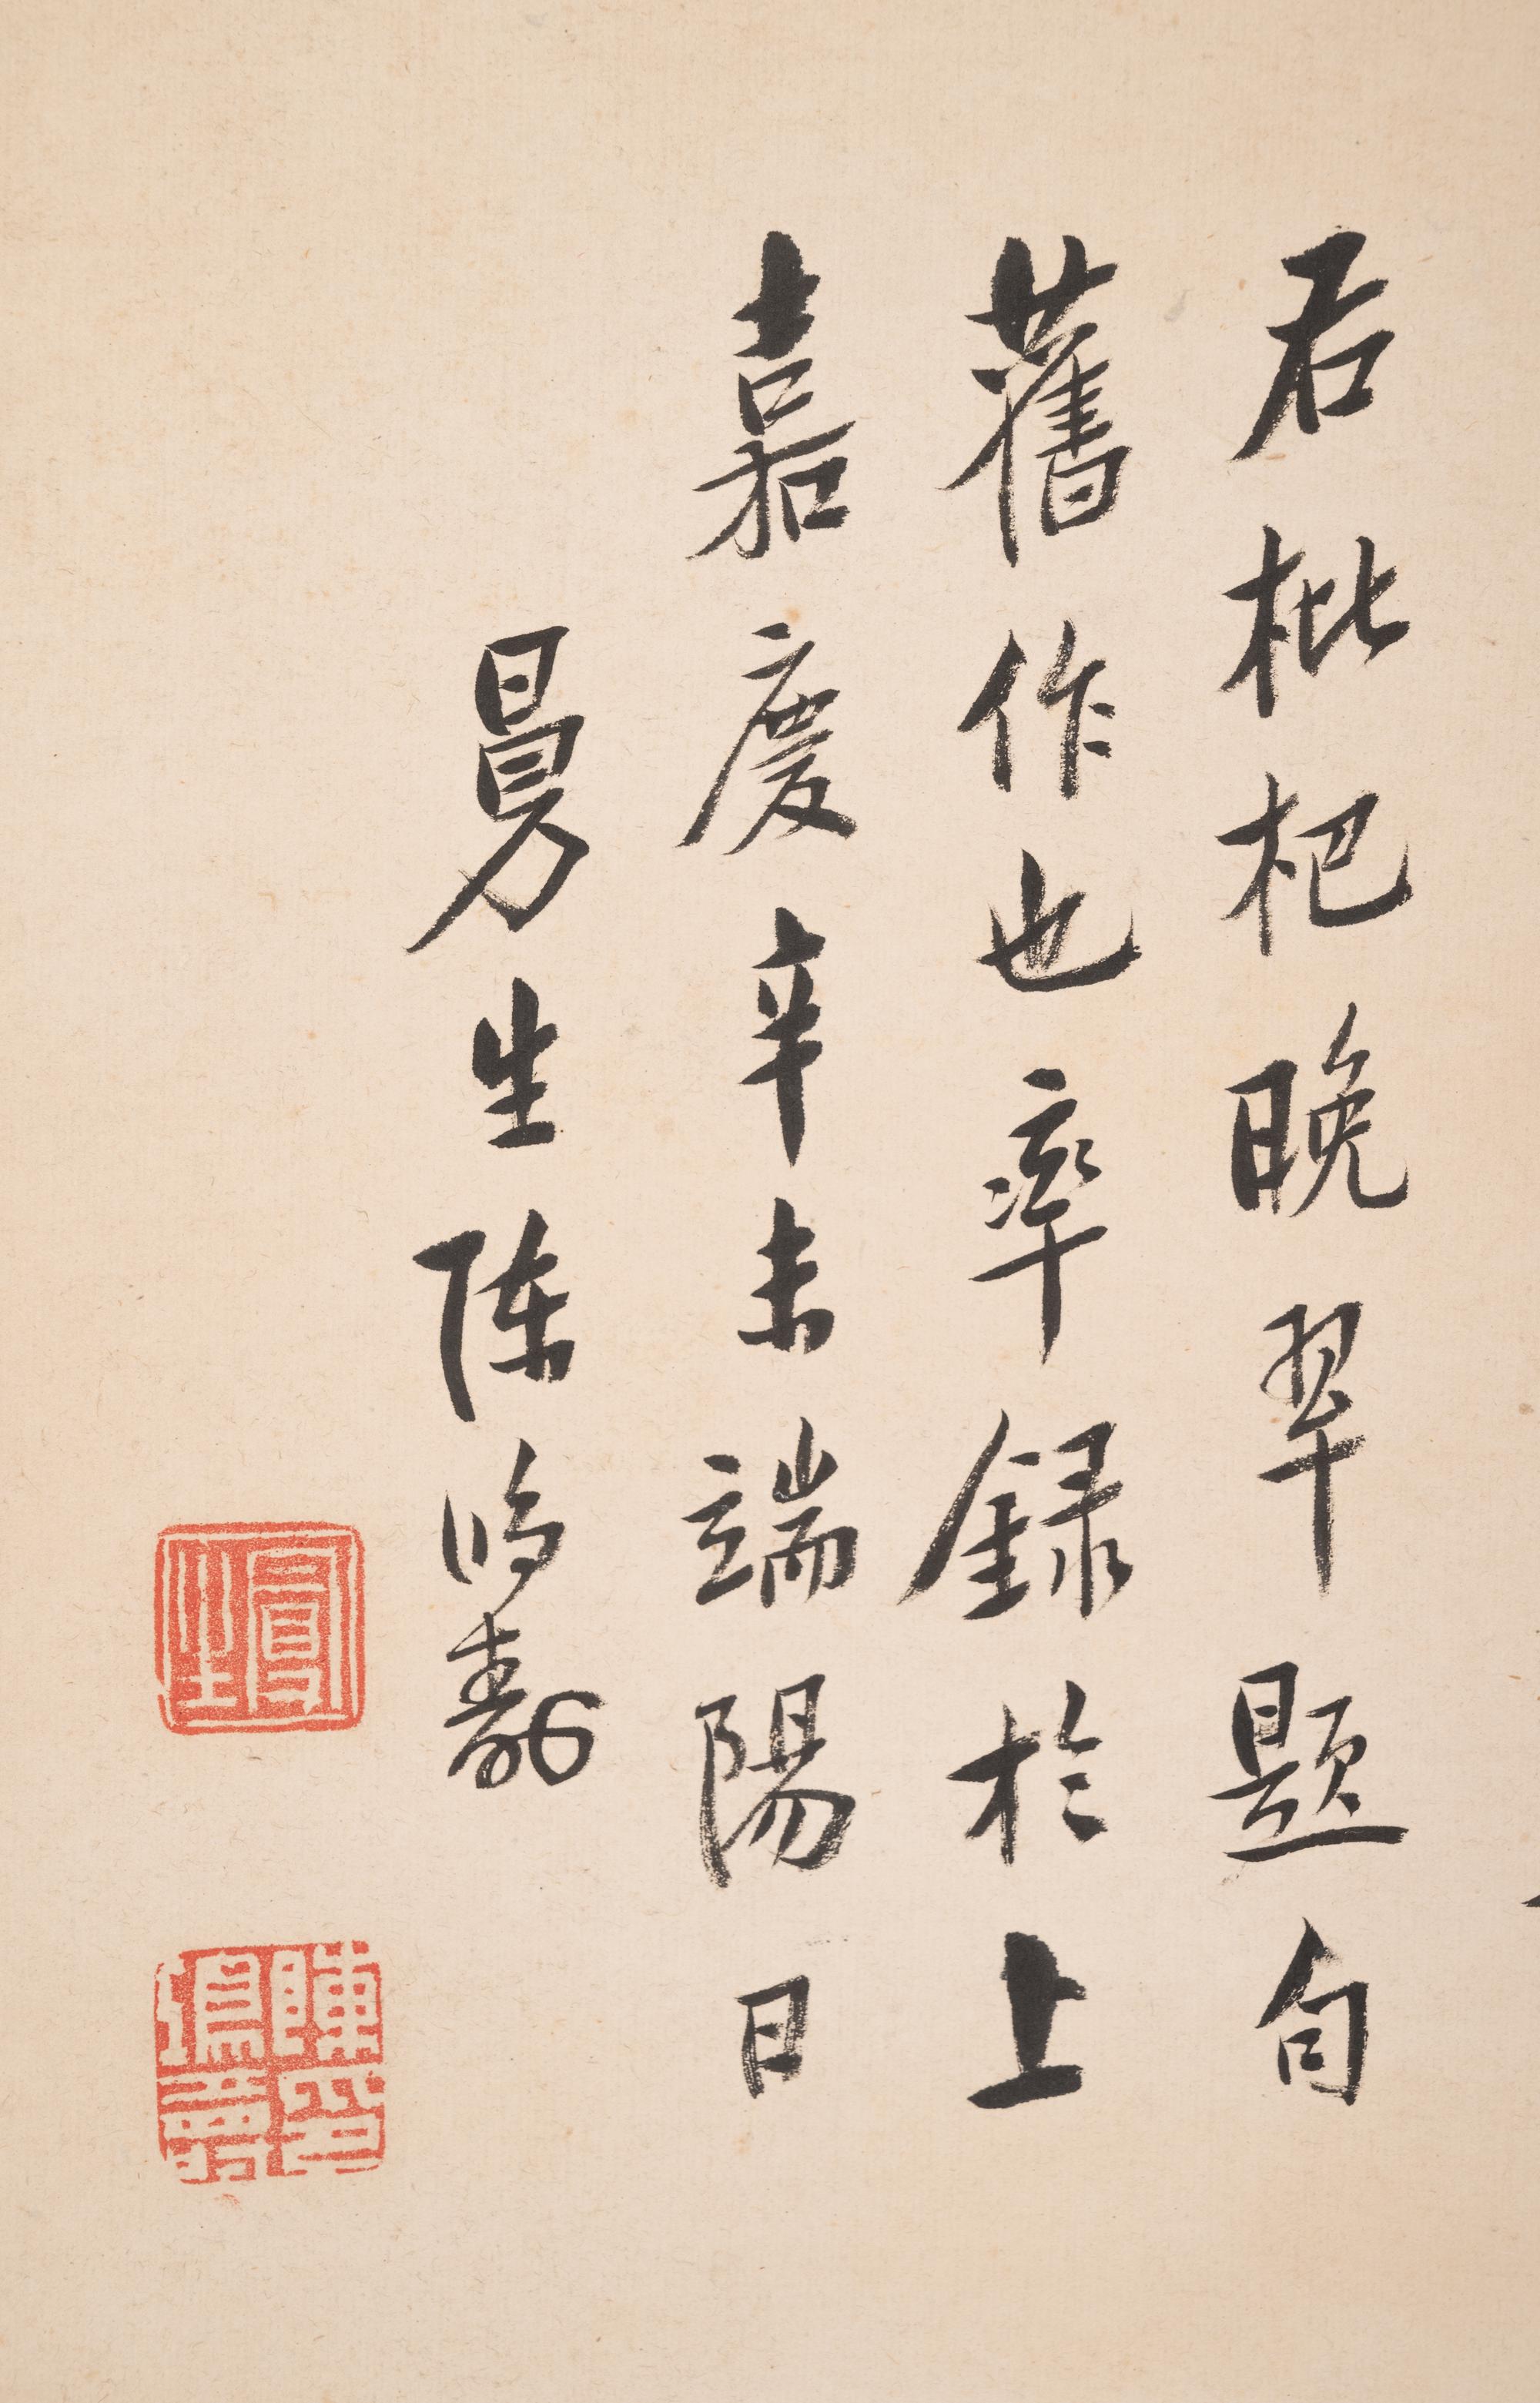 君枇杷晚翠題句
舊作也率録於上
嘉慶辛未端陽日
曼生陳鴻壽
曼生
陳鴻壽印